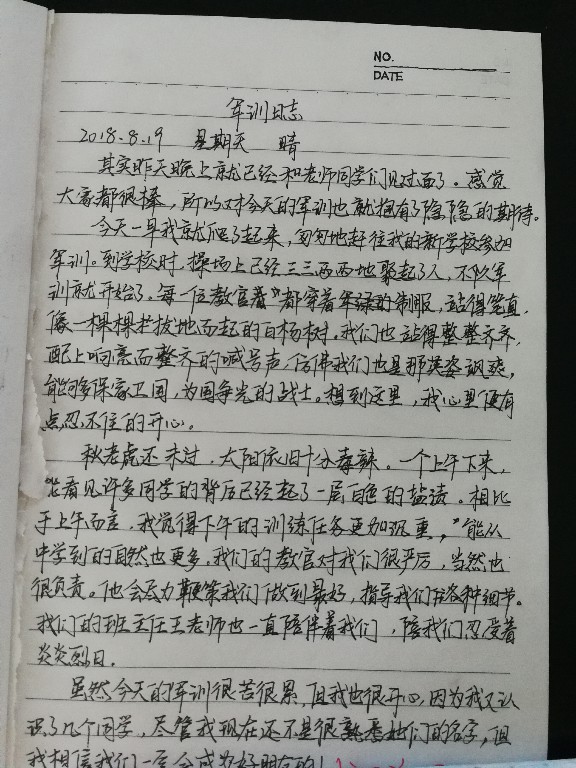 NO.
DATE
军训日志
2018.8.19 星期天 晴
其实昨天晚上就已经和老师同学们见过面了。感觉
大家都很棒，所以对今天的军训也就拥有了隐隐的期待。
今天一早我就爬了起来，匆匆地赶往我的新学校参加
军训。到学校时，操场上已经三三两两地聚起了人，不久军
训就开始了。每一位教官都穿着军绿的制服，站得笔直，
像一棵棵拔地而起的白杨树，我们也站得整整齐齐，
配上响亮而整齐的喊号声，仿佛我们也是那英姿飒爽，
能够保家卫国，为国争光的战士。想到这里，我心里便有
点忍不住的开心。
秋老虎还未过，太阳依旧十分毒辣。一个上午下来，
能看见许多同学的背后已经起了一层白色的盐渍。相比
于上午而言，我觉得下午的训练任务更加沉重，能从
中学到的自然也更多。我们的教官对我们很严厉，当然也
很负责。他会尽力鞭策我们做到最好，指导我们各种细节。
我们的班主任王老师也一直陪伴着我们，陪我们忍受着
炎炎烈日。
虽然今天的军训很苦很累，但我也很开心，因为我又认
识了几个同学，尽管我现在还不是很熟悉她们的名字，但
我相信我们一定会成为好朋友的！